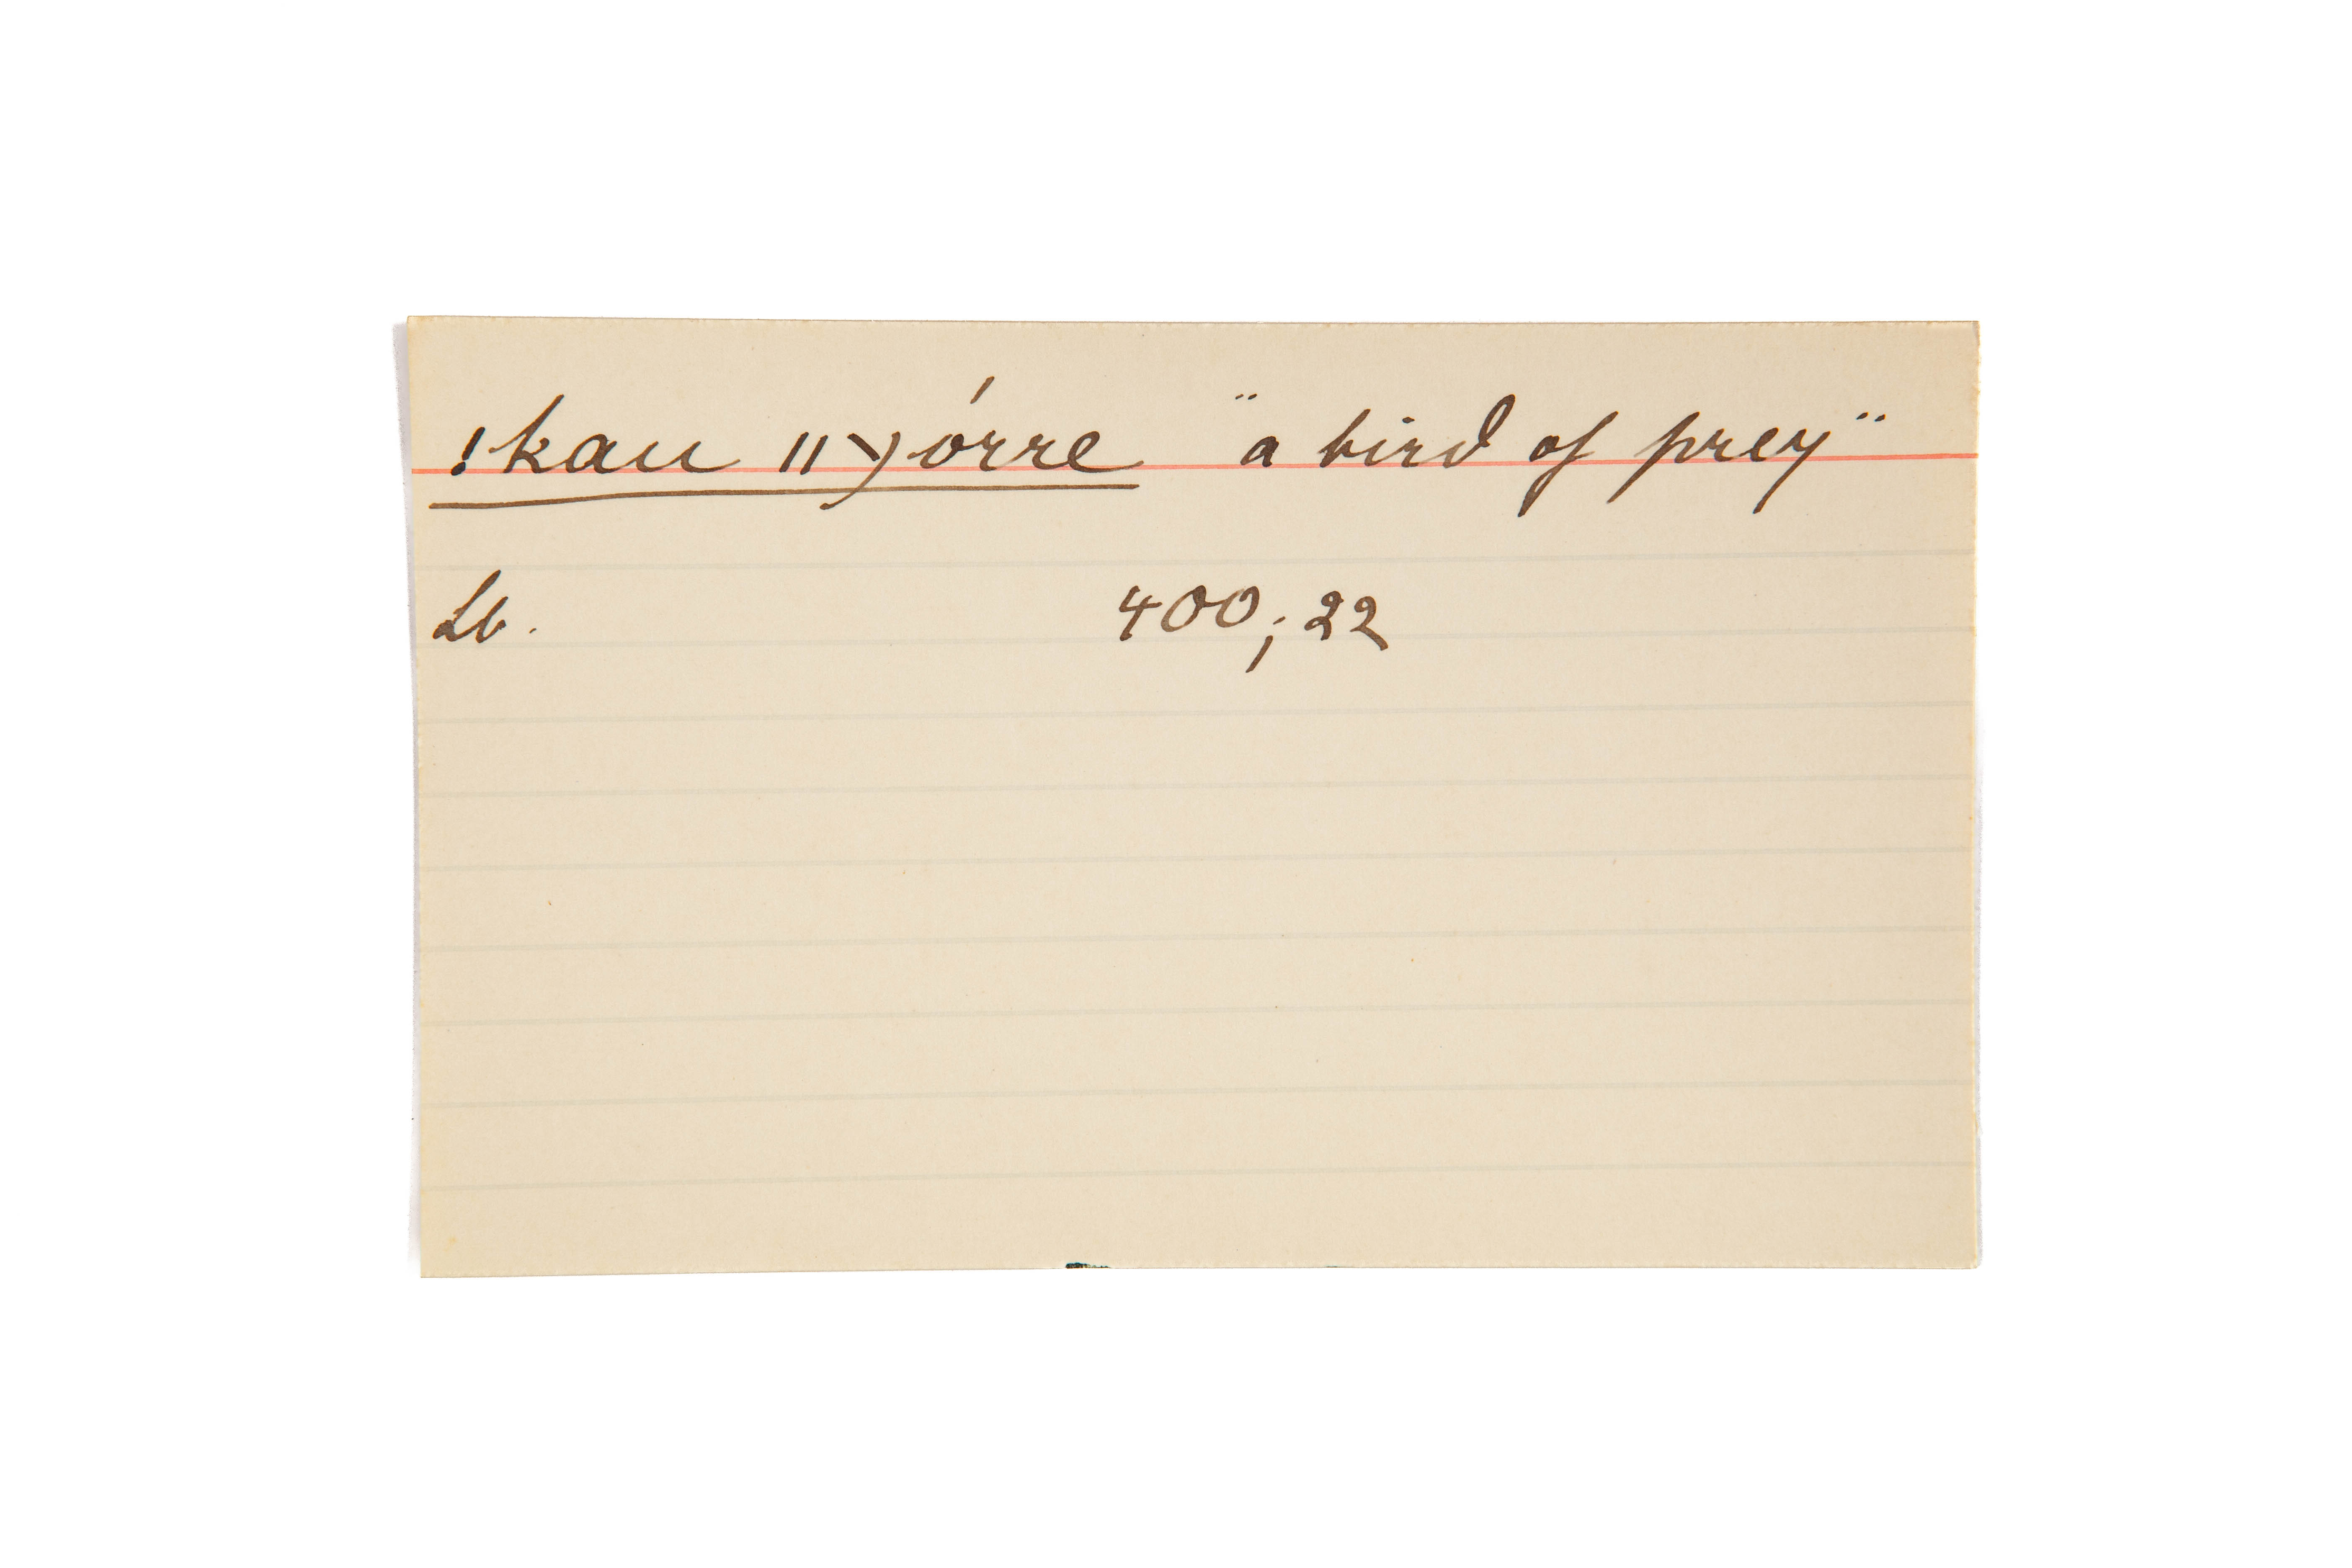 !kau ǁχórre "a bird of prey"
Lb. 400; 22